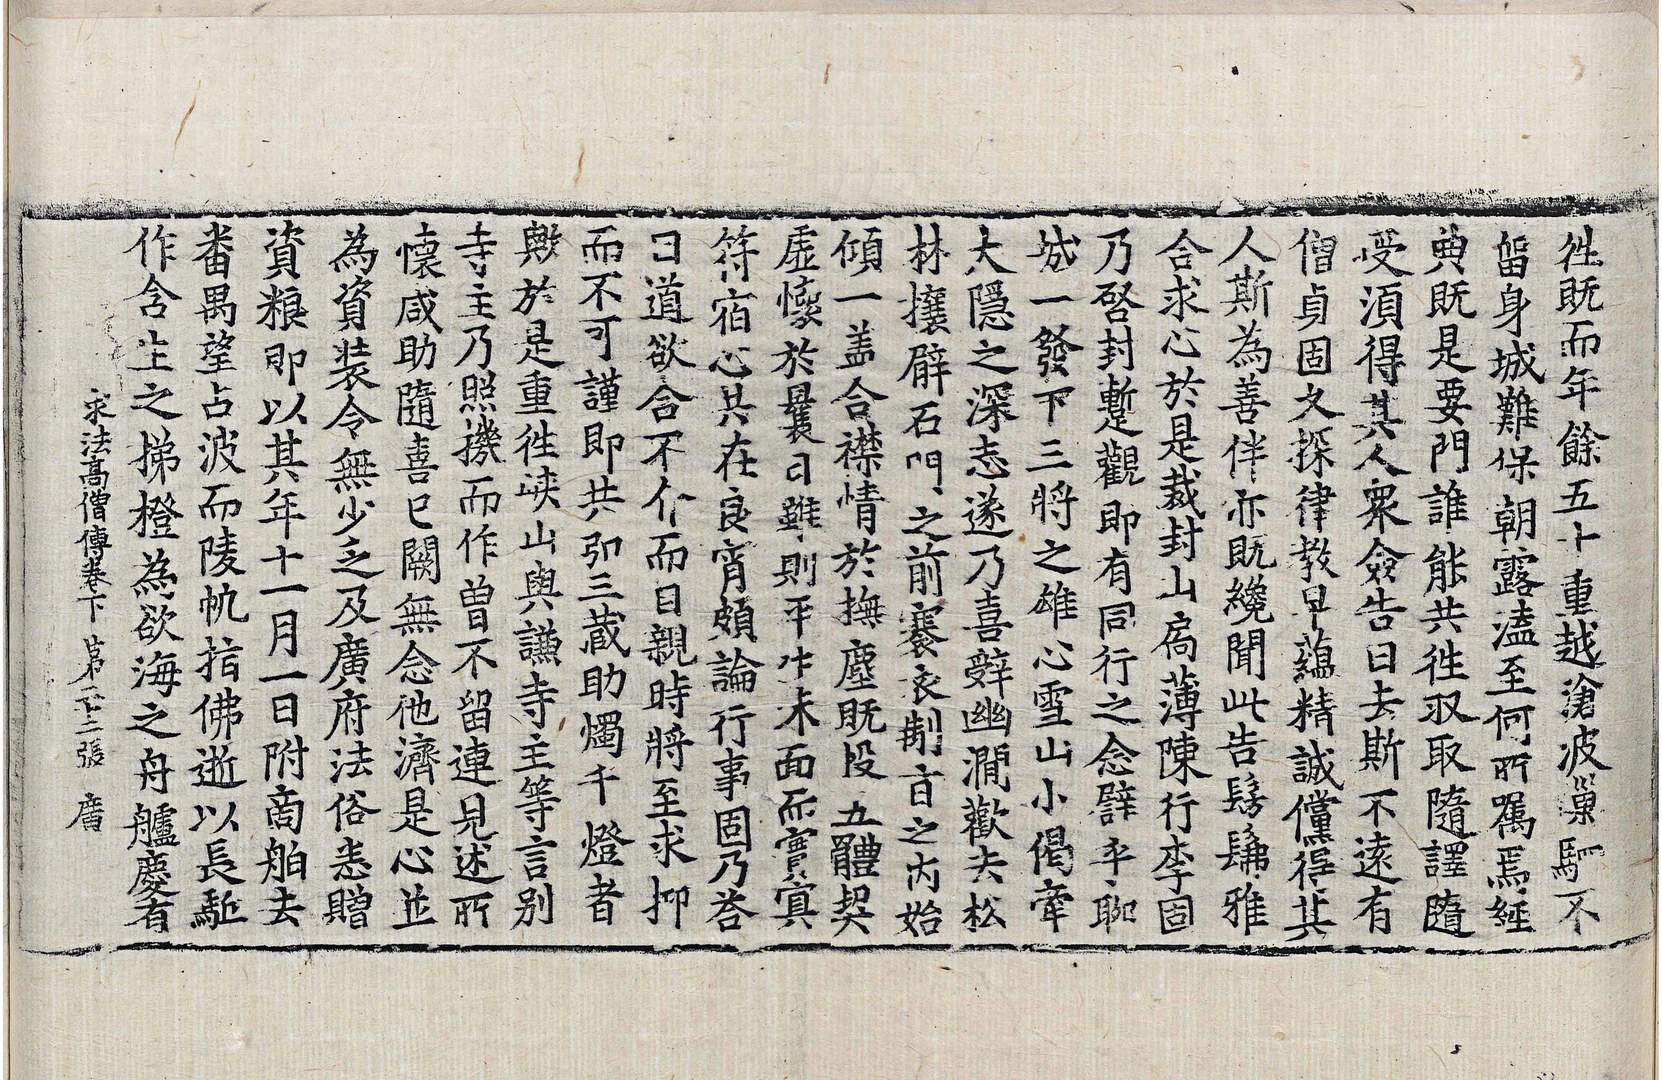 徃既而年餘五十重越滄波巢駟不
留身城難保朝露溘至何所囑焉經
典既是要門誰能共徃収取隨譯隨
受須得其人衆僉告曰去斯不遠有
僧貞固久探律教早蘊精誠儻得其
人斯為善伴亦既纔聞此告髣髴雅
合求心於是裁封山扃薄陳行李固
乃啓封蹔觀即有同行之念譬乎聊
城一發下三將之雄心雪山小偈牽
大隱之深志遂乃喜辤幽澗歡去松
林攘臂石門之前褰衣制㫖之內始
傾一盖合襟情於撫塵既投五體契
虚懷於曩日雖則平生未面而實冥
符宿心共在良宵頗論行事固乃荅
曰道欲合不介而自親時將至求抑
而不可謹即共弘三藏助燭千燈者
歟於是重徃峽山與謙寺主等言別
寺主乃照機而作曽不留連見述所
懷咸助隨喜已闕無念他濟是心並
為資装令無少乏及廣府法俗悉贈
資粮即以其年十一月一日附商舶去
番禺望占波而陵帆指佛逝以長駈
作含生之梯橙為欲海之舟艫慶有
求法髙僧傳卷下 苐廿二張 廣